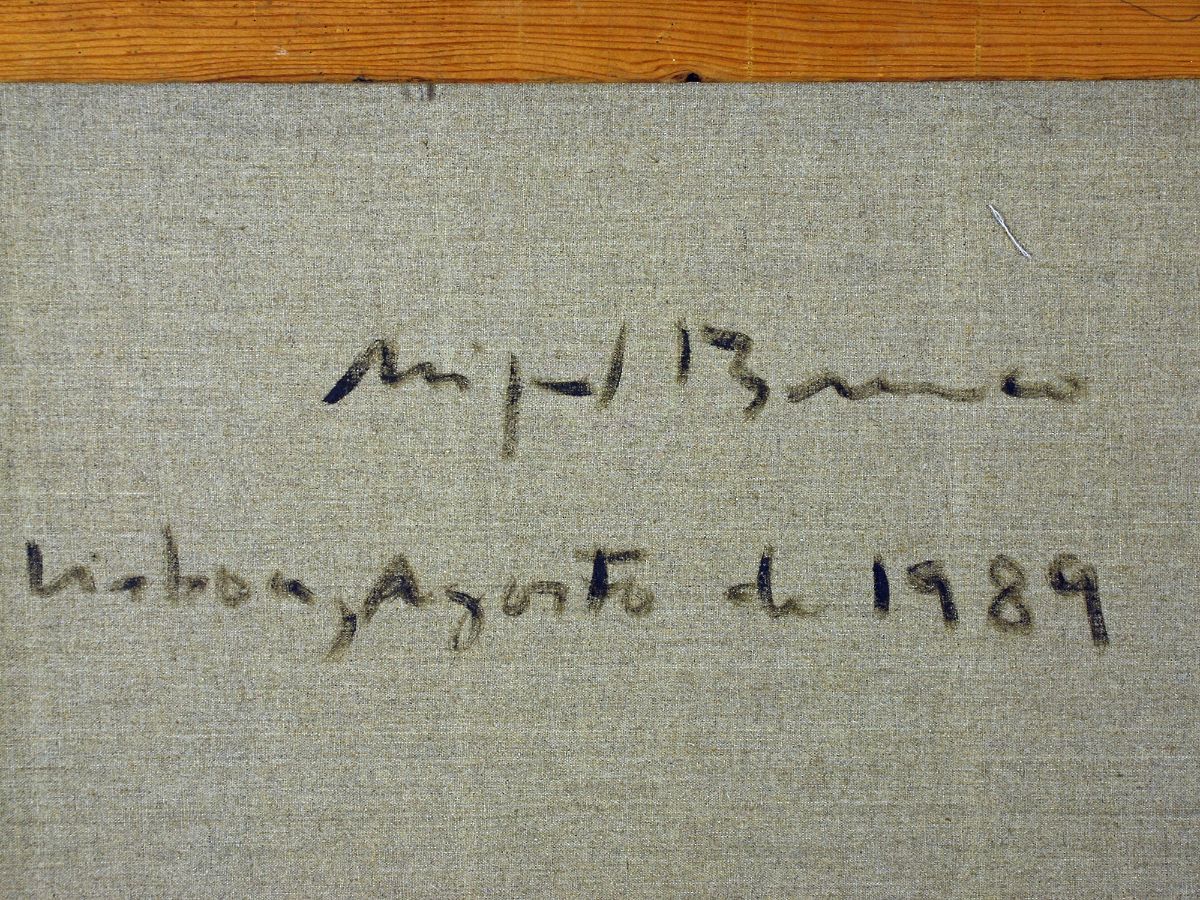 Miguel Branco
Lisboa, Agosto de 1989